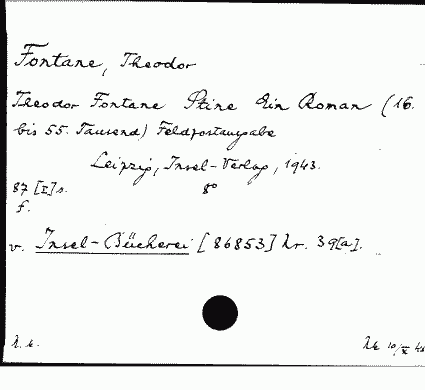 Fontane, Theodor
Theodor Fontane Stine Ein Roman (16.
bis 55. Tausend) Feldpostausgabe
Leipzig, Insel-Verlag, 1943.
87 [I] s. 8°
f.
v. Insel-Bücherei [86853] Nr. 39[a].
10/X